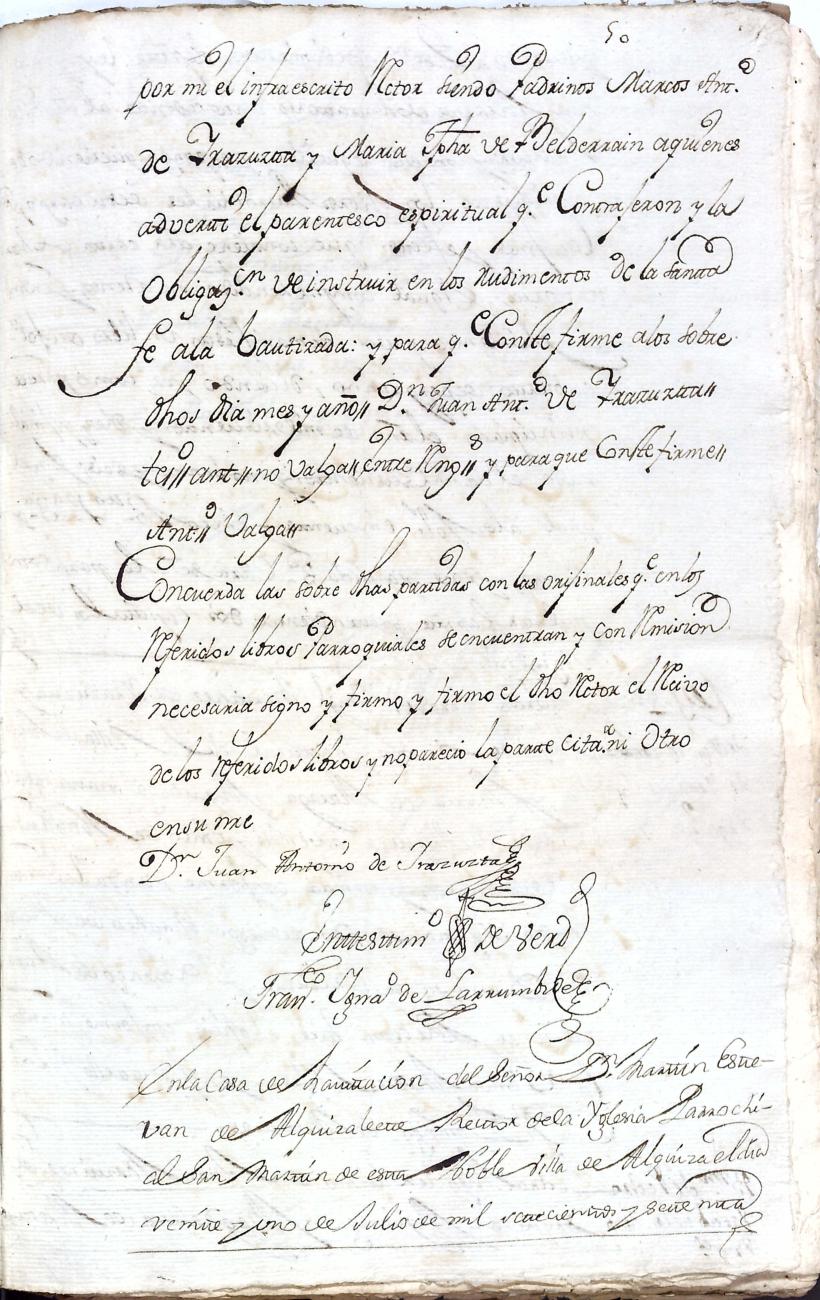 50
por mi el infraescrito Rctor siendo Padrinos Marcos Ant.º
de Yrazuzta y Maria Jpha de Belderrain aquienes
adverti el parentesco espiritual q.e Contrajeron y la
Obligaz.cn de instruir en los Rudimentos de la santta
fe ala bautizada: y para q.e Conste firme alos sobre
dhos dia mes y año,, D.n Juan Ant.º de Yrazuzta,,
tdo,, ant,, no valga,, entre Rng.s,, y para que Conste firme,,
Ant.º,, Valga,,
Concuerda las sobre dhas partidas con las orijinales q.e en los
Referidos libros Parroquiales se encuentran y con Remision
necesaria signo y firmo y firmo el dho Rctor el Reivo
de los Referidos libros y no parecio la parte cita. ni Otro
en su nre
D.n Juan Antonio de Yrazuzta
Enttesttim.º de Verd
Fran.co Ygna.º de Larrumbide
En la Casa de havittacion del Señor D.n Marttin Estte-
van de Alquizalette Rector de la Yglesia Parrochi-
al San Marttin de estta Noble Villa de Alquiza el dia
veintte y uno de Julio de mil settecienttos y settentta